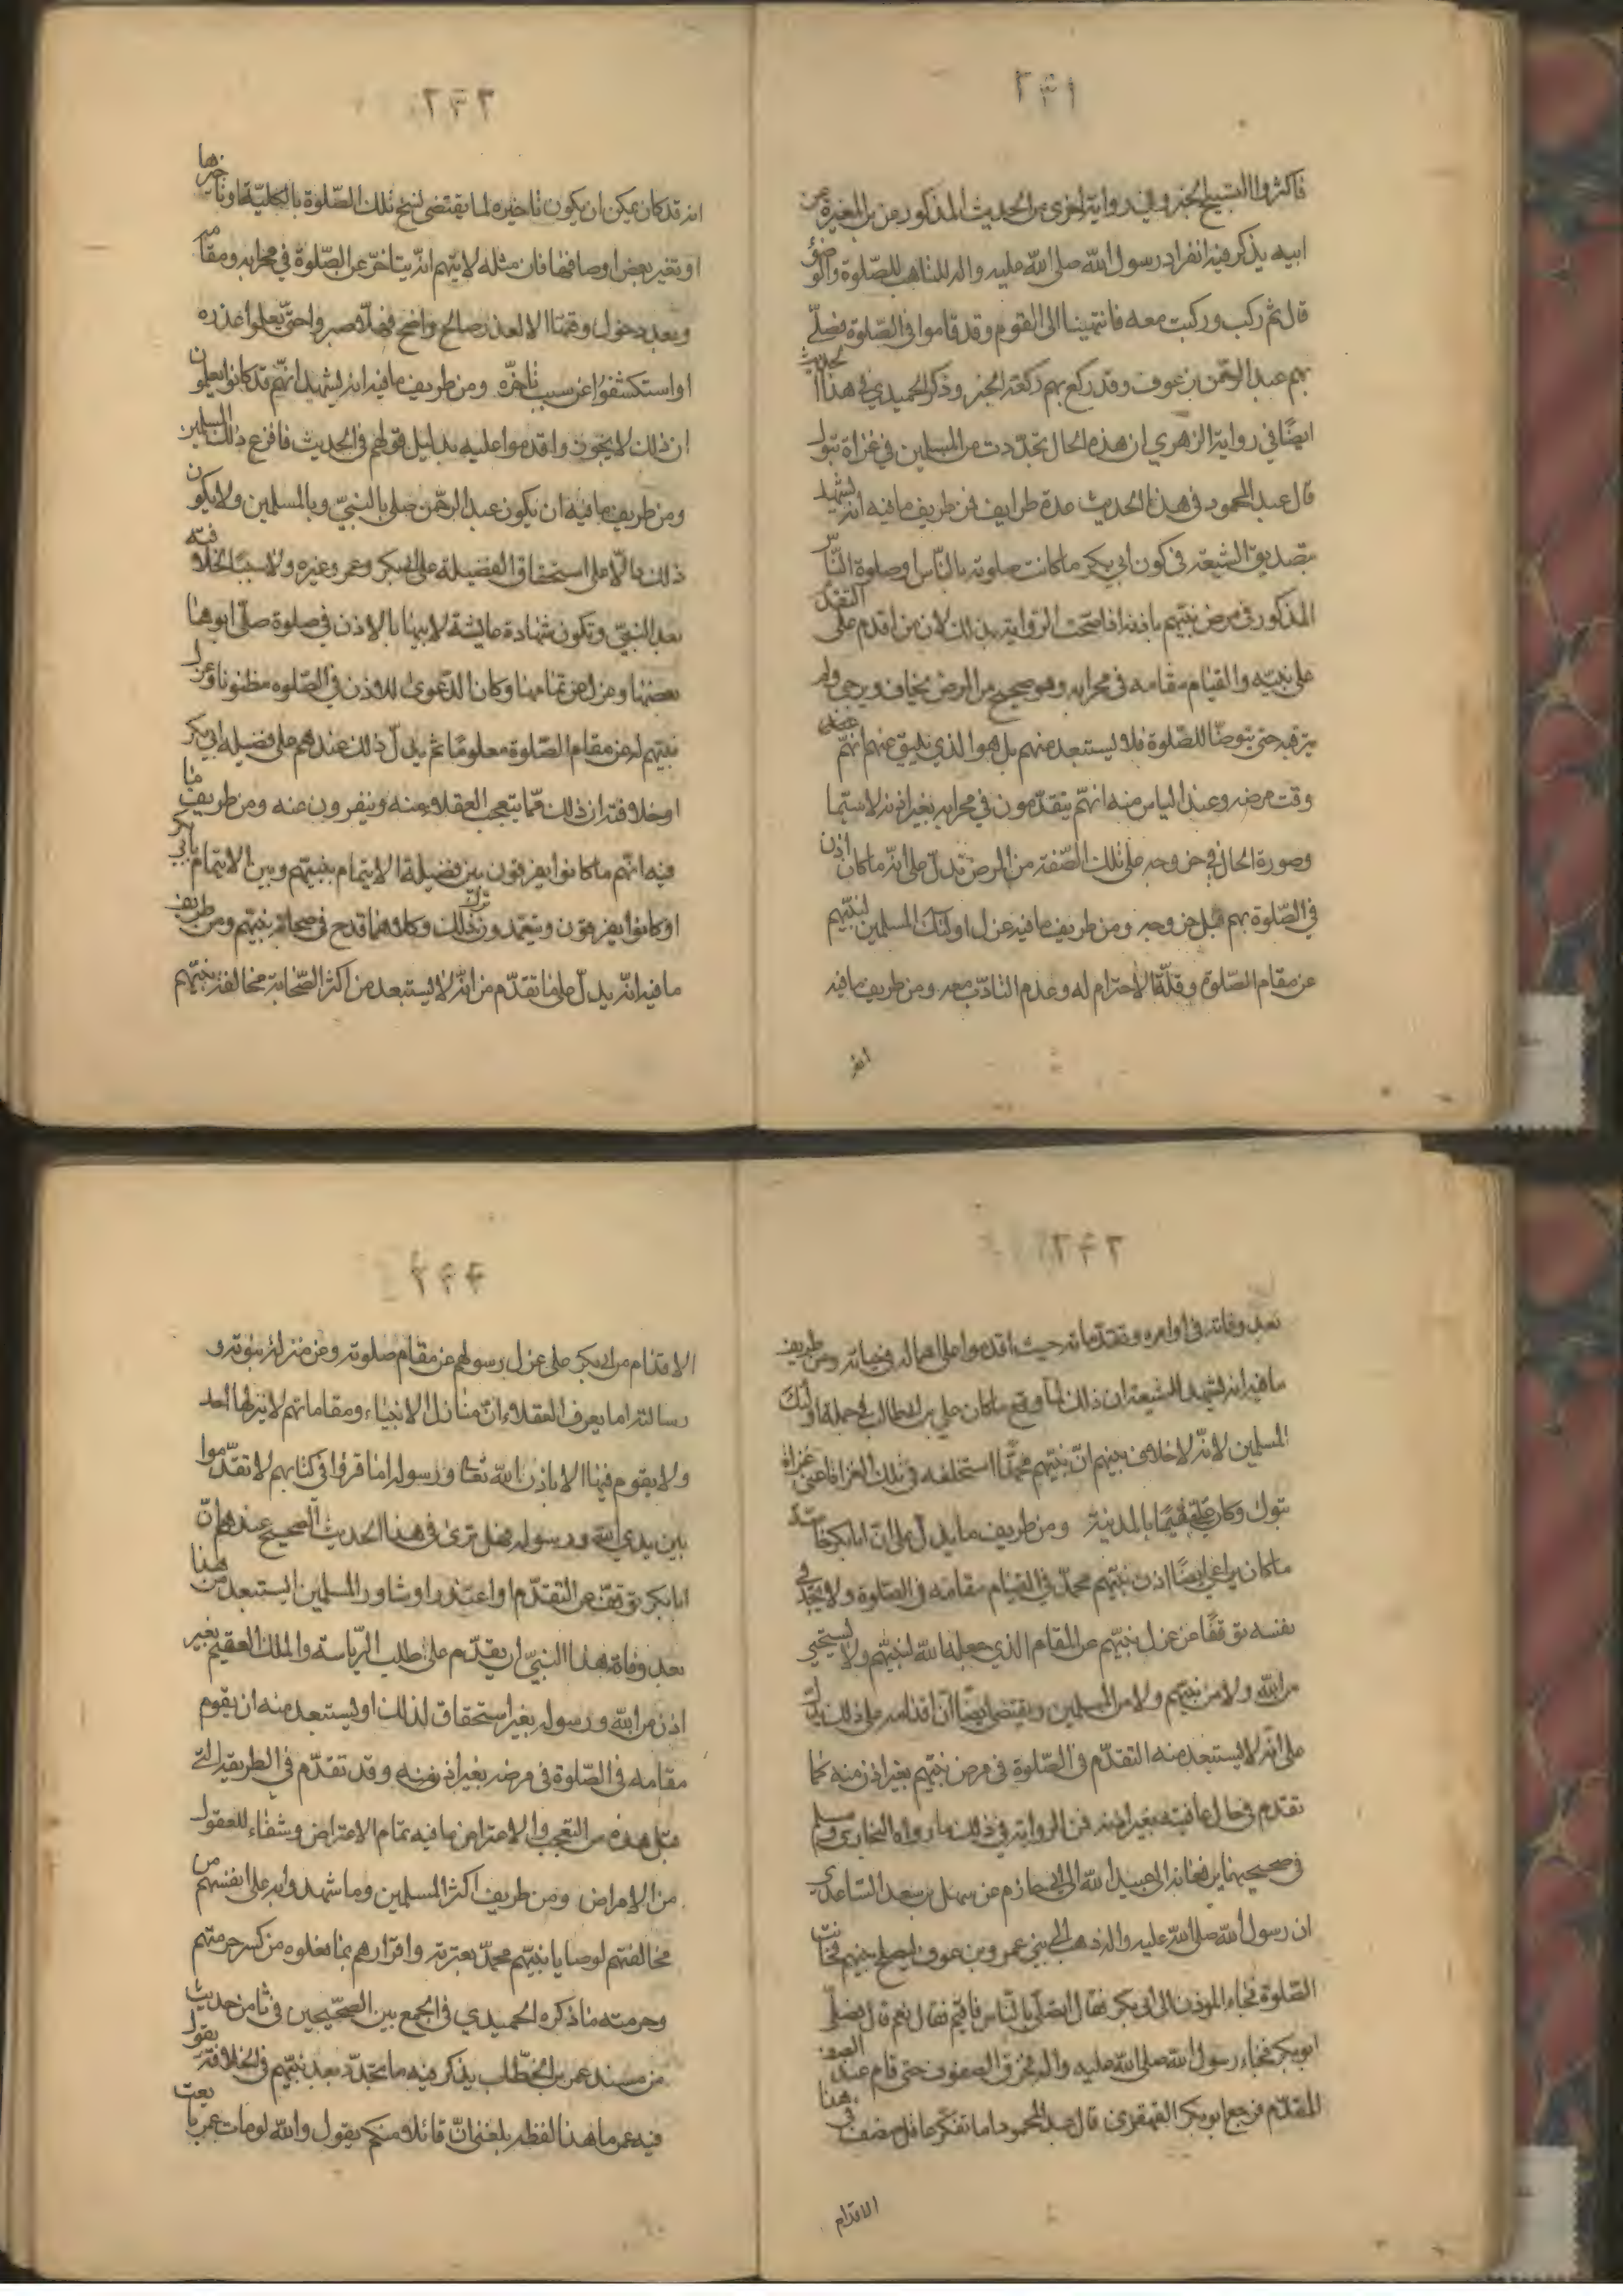 ٢٤١
فاكثروا التسبيح الخبر وفي رواية اخرى من الحديث المذكور من بن المغيرة عن
ابيه يذكر فيه انفراد رسول الله صلى الله عليه واله للتاهب للصّلوة والوضوء
قال ثم ركب وركبت معه فانتهينا الى القوم وقد قاموا في الصّلوة فصلّى
بهم عبد الرحمن بن عوف وقد ركع بهم ركعة الخبر وذكر الحميدي في هذا الحديث
ايضًا في رواية الزهري ان هذه الحال تجدّدت من المسلمين في غزاة تبوك
قال عبد المحمود في هذا الحديث عدة طرايف فمن طريف ما فيه انه يشهد
بتصديق الشيعة في كون ابي بكر ما كانت صلوته بالنّاس وصلوة النّاس
المذكور في مرض نبيّهم باذنه اذا صحت الرواية بذلك لان من اقدم على التقدّم
على نبيّه والقيام مقامه في محرابه وهو صحيح من المرض يخاف ويرجى ولم
يترقبه حتى يتوضّا للصّلوة فلا يستبعد منهم بل هو الذي يليق عنهم انهم عند
وقت مرضه وعند الياس منه انهم يتقدّمون في محرابه بغير اذنه لا سيّما
وصورة الحال في خروجه على تلك الصّفة من المرض تدلّ على انّه ما كان اذن
في الصّلوة بهم قبل خروجه ومن طريف ما فيه عزل اولئك المسلمين لنبيّهم
عن مقام الصّلوة وقلّة الاحترام له وعدم التادّب معه ومن طريف ما فيه
انه
٢٤٢
انه قد كان يمكن ان يكون تاخيره لما يقتضي نسخ تلك الصّلوة بالكليّة او تاخيرها
او تغير بعض اوصافها فان مثله لا يتّهم انّه يتاخّر عن الصّلوة في محرابه ومقامه
وبعد دخول وقتها الا لعذر صالح واضح فهلّا صبروا حتّى يعلموا عذره
او استكشفوا عن سبب تاخّره ومن طريف ما فيه انه يشهد انّهم قد كانوا يعلمون
ان ذلك لا يجوز واقدموا عليه بدليل قولهم في الحديث فافزع ذلك المسلمين
ومن طريف ما فيه ان يكون عبد الرحمن صلى بالنبيّ وبالمسلمين ولا يكون
ذلك دالّا على استحقاق الفضيلة على ابي بكر وعمر وغيره ولا سببًا لخلافته
بعد النبيّ وتكون شهادة عايشة لابيها بالاذن في صلوة صلّى ابوها
بعضها وعزل عن تمامها وكان الدّعوى للاذن في الصّلوه مظنونا وعزل
نبيّهم له عن مقام الصّلوة معلومًا ثم يدلّ ذلك عندهم على فضيلة ابي بكر
او خلافته ان ذلك ممّا يتعجب العقلاء منه وينفرون عنه ومن طريف ما
فيه انّهم ما كانوا يفرقون بين فضيلة الايتمام بنبيّهم وبين الايتمام بابي بكر
او كانوا يفرقون ويتعمدون ترك ذلك وكلاهما قدح في صحابة نبيّهم ومن طريف
ما فيه انّه يدلّ على ما تقدّم من انّه لا يستبعد من اكثر الصّحابة مخالفة نبيّهم
٢٤٣
بعد وفاته في اوامره وتقدّماته حيث اقدموا على اهماله في حياته ومن طريف
ما فيه انه يشهد للشيعة ان ذلك لمّا وقع ما كان علي بن ابي طالب في جملة اولئك
المسلمين لانّه لا خلاف بينهم انّ نبيّهم محمّدًا استخلفه في تلك الغزاة اعني غزاة
تبوك وكان علي مقيمًا بالمدينة ومن طريف ما يدلّ على انّ ابا بكر خاصّة
ما كان يراعي ايضًا اذن نبيّهم محمّد في القيام مقامه في الصّلوة ولا يجد في
نفسه توقفًا عن عزل نبيّهم عن المقام الذي جعله الله لنبيّهم ولا يستحيي
من الله ولا من نبيّهم ولا من المسلمين ويقتضي ايضًا انّ اقدامه على ذلك يدلّ
على انّه لا يستبعد منه التقدّم في الصّلوة في مرض نبيّهم بغير اذن منه كما
تقدّم في حال عافيته بغير اذنه فمن الرواية في ذلك ما رواه البخاري ومسلم
في صحيحيهما يرفعانه الى عبيد الله الى ابي حازم عن سهل بن سعد السّاعدي
ان رسول الله صلى الله عليه واله ذهب الى بني عمرو بن عوف ليصلح بينهم فحانت
الصّلوة فجاء الموذن الى ابي بكر فقال اتصلّي بالنّاس فاقيم فقال نعم قال فصلّى
ابو بكر فجاء رسول الله صلى الله عليه واله فخرق الصفوف حتى قام عند الصف
المقدّم فرجع ابو بكر القهقرى قال عبد المحمود اما تفكّر عاقل منصف في هذا
الاقدام
٢٤٤
الاقدام من ابي بكر على عزل رسولهم عن مقام صلوته وعن منزلة نبوته و
رسالته اما يعرف العقلاء انّ منازل الانبياء ومقاماتهم لا ينزلها احد
ولا يقوم فيها الا باذن الله تعالى ورسوله اما قرؤا في كتابهم لا تقدّموا
بين يدي الله ورسوله فهل ترى في هذا الحديث الصحيح عندهم انّ
ابا بكر توقف عن التقدّم او اعتذر او شاور المسلمين ايستبعد من هذا
بعد وفاة هذا النبيّ ان يقدّم على طلب الرّياسة والملك العقيم بغير
اذن من الله ورسوله بغير استحقاق لذلك او يستبعد منه ان يقوم
مقامه في الصّلوة في مرضه بغير اذن منه وقد تقدّم في الطريقة التي
قبل هذه من التعجب والاعتراض ما فيه تمام الاعتراض وشفاء للعقول
من الامراض ومن طريف اكثر المسلمين وما شهدوا به على انفسهم من
مخالفتهم لوصايا نبيّهم محمّد بعترته واقرارهم بما فعلوه من كسر حرمتهم
وحرمته ما ذكره الحميدي في الجمع بين الصحيحين في ثامن حديث
من مسند عمر بن الخطّاب يذكر فيه ما تجدّد بعد نبيّهم في الخلافة يقول
فيه عمر ما هذا لفظه بلغني انّ قائلا منكم يقول والله لو مات عمر بايعت